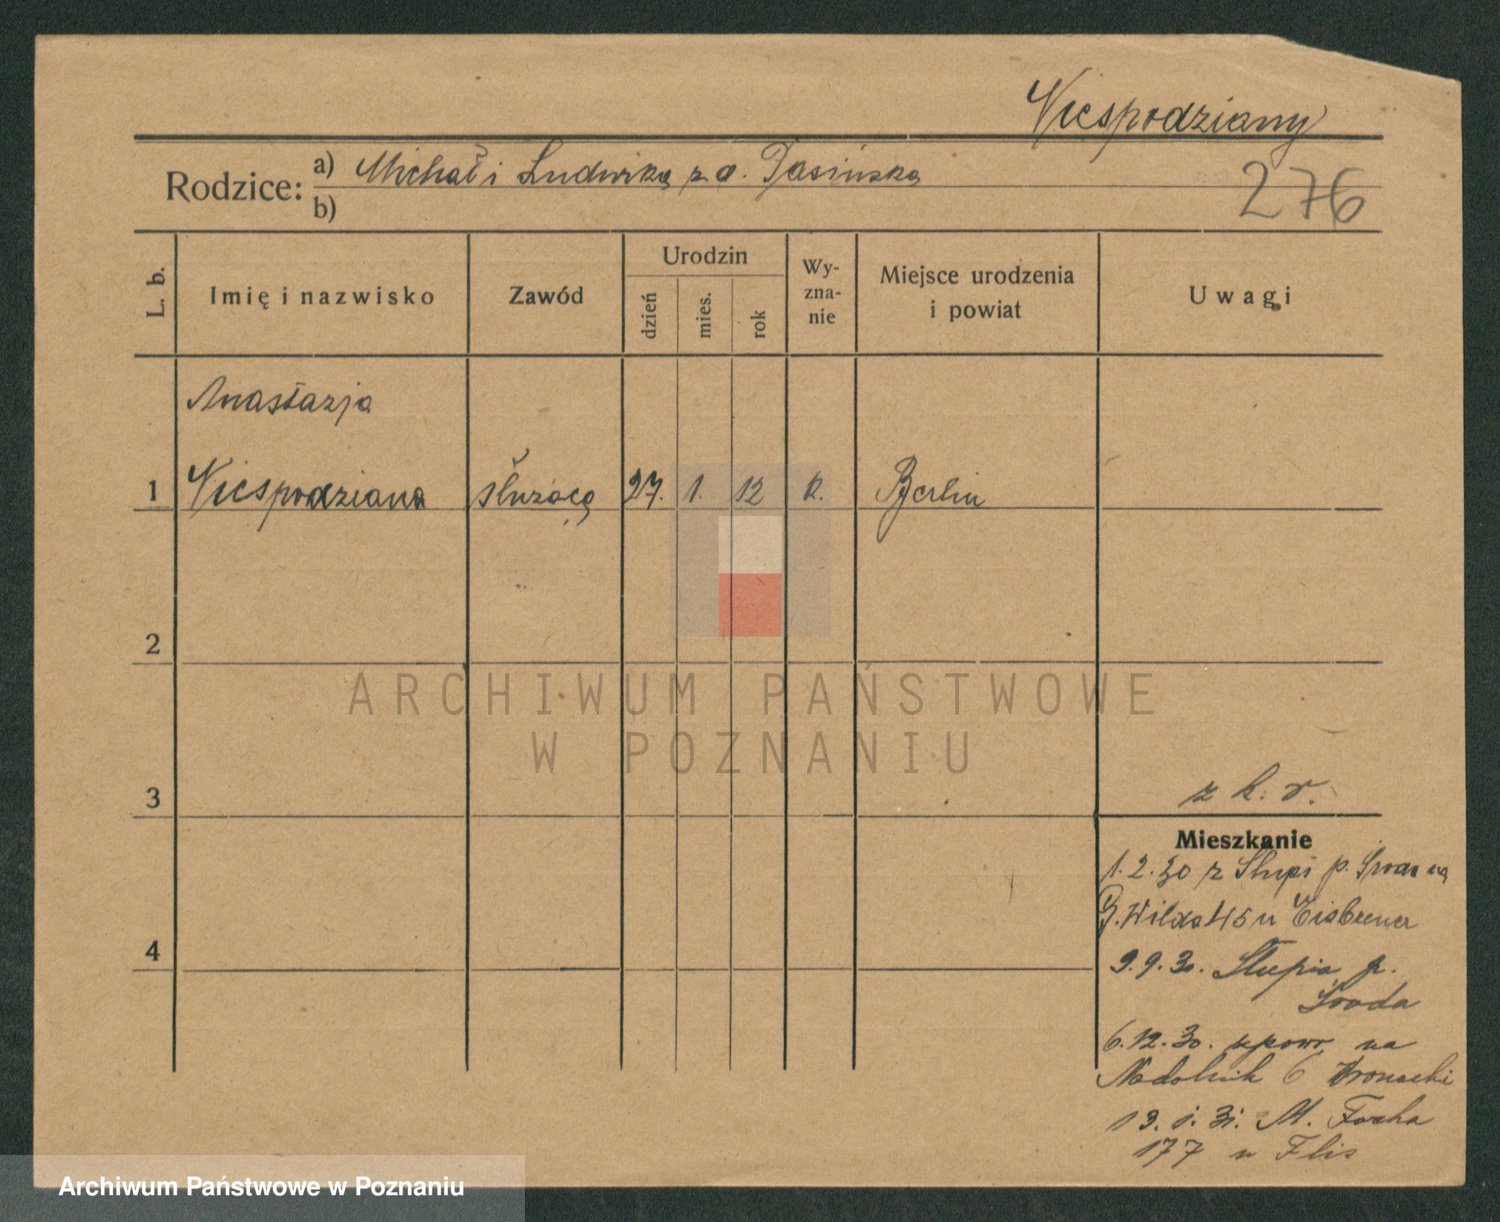 Niespodziany
Rodzice: a) Michał i Ludwika z d. Jasińska
b)
276
L. b.
Imię i nazwisko
Zawód
Urodzin
dzień
mies.
rok
Wy-
zna-
nie
Miejsce urodzenia
i powiat
Uwagi
Anastazja
1 Niespodziana służąca 27. 1. 12 k. Berlin
2
ARCHIWUM PAŃSTWOWE
W POZNANIU
3
z k. r.
Mieszkanie
1.2.30 z Słupi p. Środa na
G. Wilda 45 u
9.9.30. Słupia p.
Środa
6.12.30. z powr na
Nadolnik 6
13.1.31. M. Focha
177 u Flis
4
Archiwum Państwowe w Poznaniu